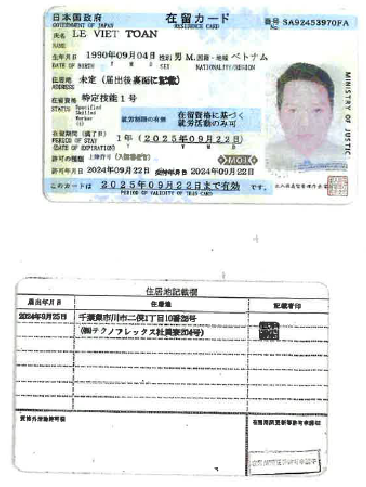 日本国政府 在留カード 番号 SA92453970FA
GOVERNMENT OF JAPAN RESIDENCE CARD
氏名 LE VIET TOAN
NAME
生年月日 1990年09月04日 性別 男 M. 国籍・地域 ベトナム
DATE OF BIRTH Y M D SEX NATIONALITY/REGION
住居地 未定（届出後裏面に記載）
ADDRESS
在留資格 特定技能1号
STATUS Specified
Skilled
Worker
(i)
就労制限の有無 在留資格に基づく
就労活動のみ可
在留期間（満了日） 1年（2025年09月22日）
PERIOD OF STAY
(DATE OF EXPIRATION) Y M D
許可の種類 上陸許可（入国審査官） MOJ
許可年月日 2024年09月22日 交付年月日 2024年09月22日
このカードは 2025年09月22日まで有効 です。
PERIOD OF VALIDITY OF THIS CARD
MINISTRY OF JUSTICE
住居地記載欄
届出年月日 住居地 記載者印
2024年9月25日 千葉県市川市二俣1丁目10番25号
(㈱テクノフレックス社員寮204号)
資格外活動許可欄